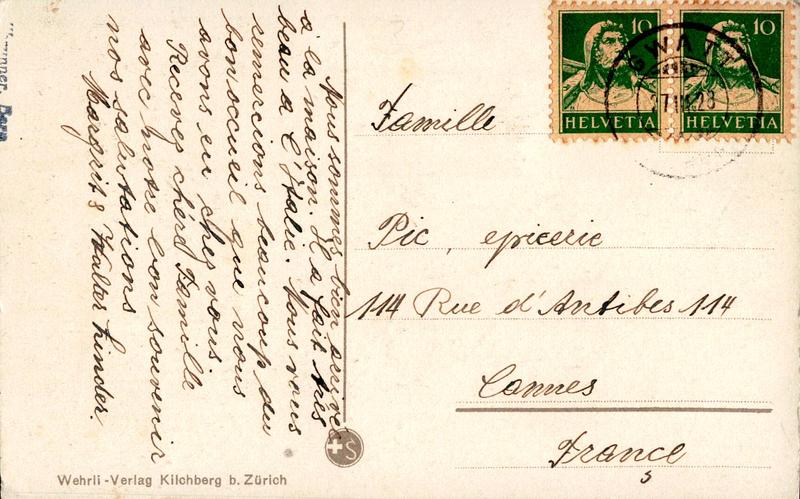 Nous sommes bien arrivé
à la maison. Il a fait très
beau a l'Italie. Nous vous
remercions beaucoup du
bon accueil que nous
avons eu chez vous.
Recevez chérd Famille
avec notre bon souvenir
nos salutations
Margrit & Walter Linder.
10 10
HELVETIA HELVETIA
GWATT
Famille
Pic, epicerie
114 Rue d'Antibes 114
Cannes
France
S
Wehrli-Verlag Kilchberg b. Zürich